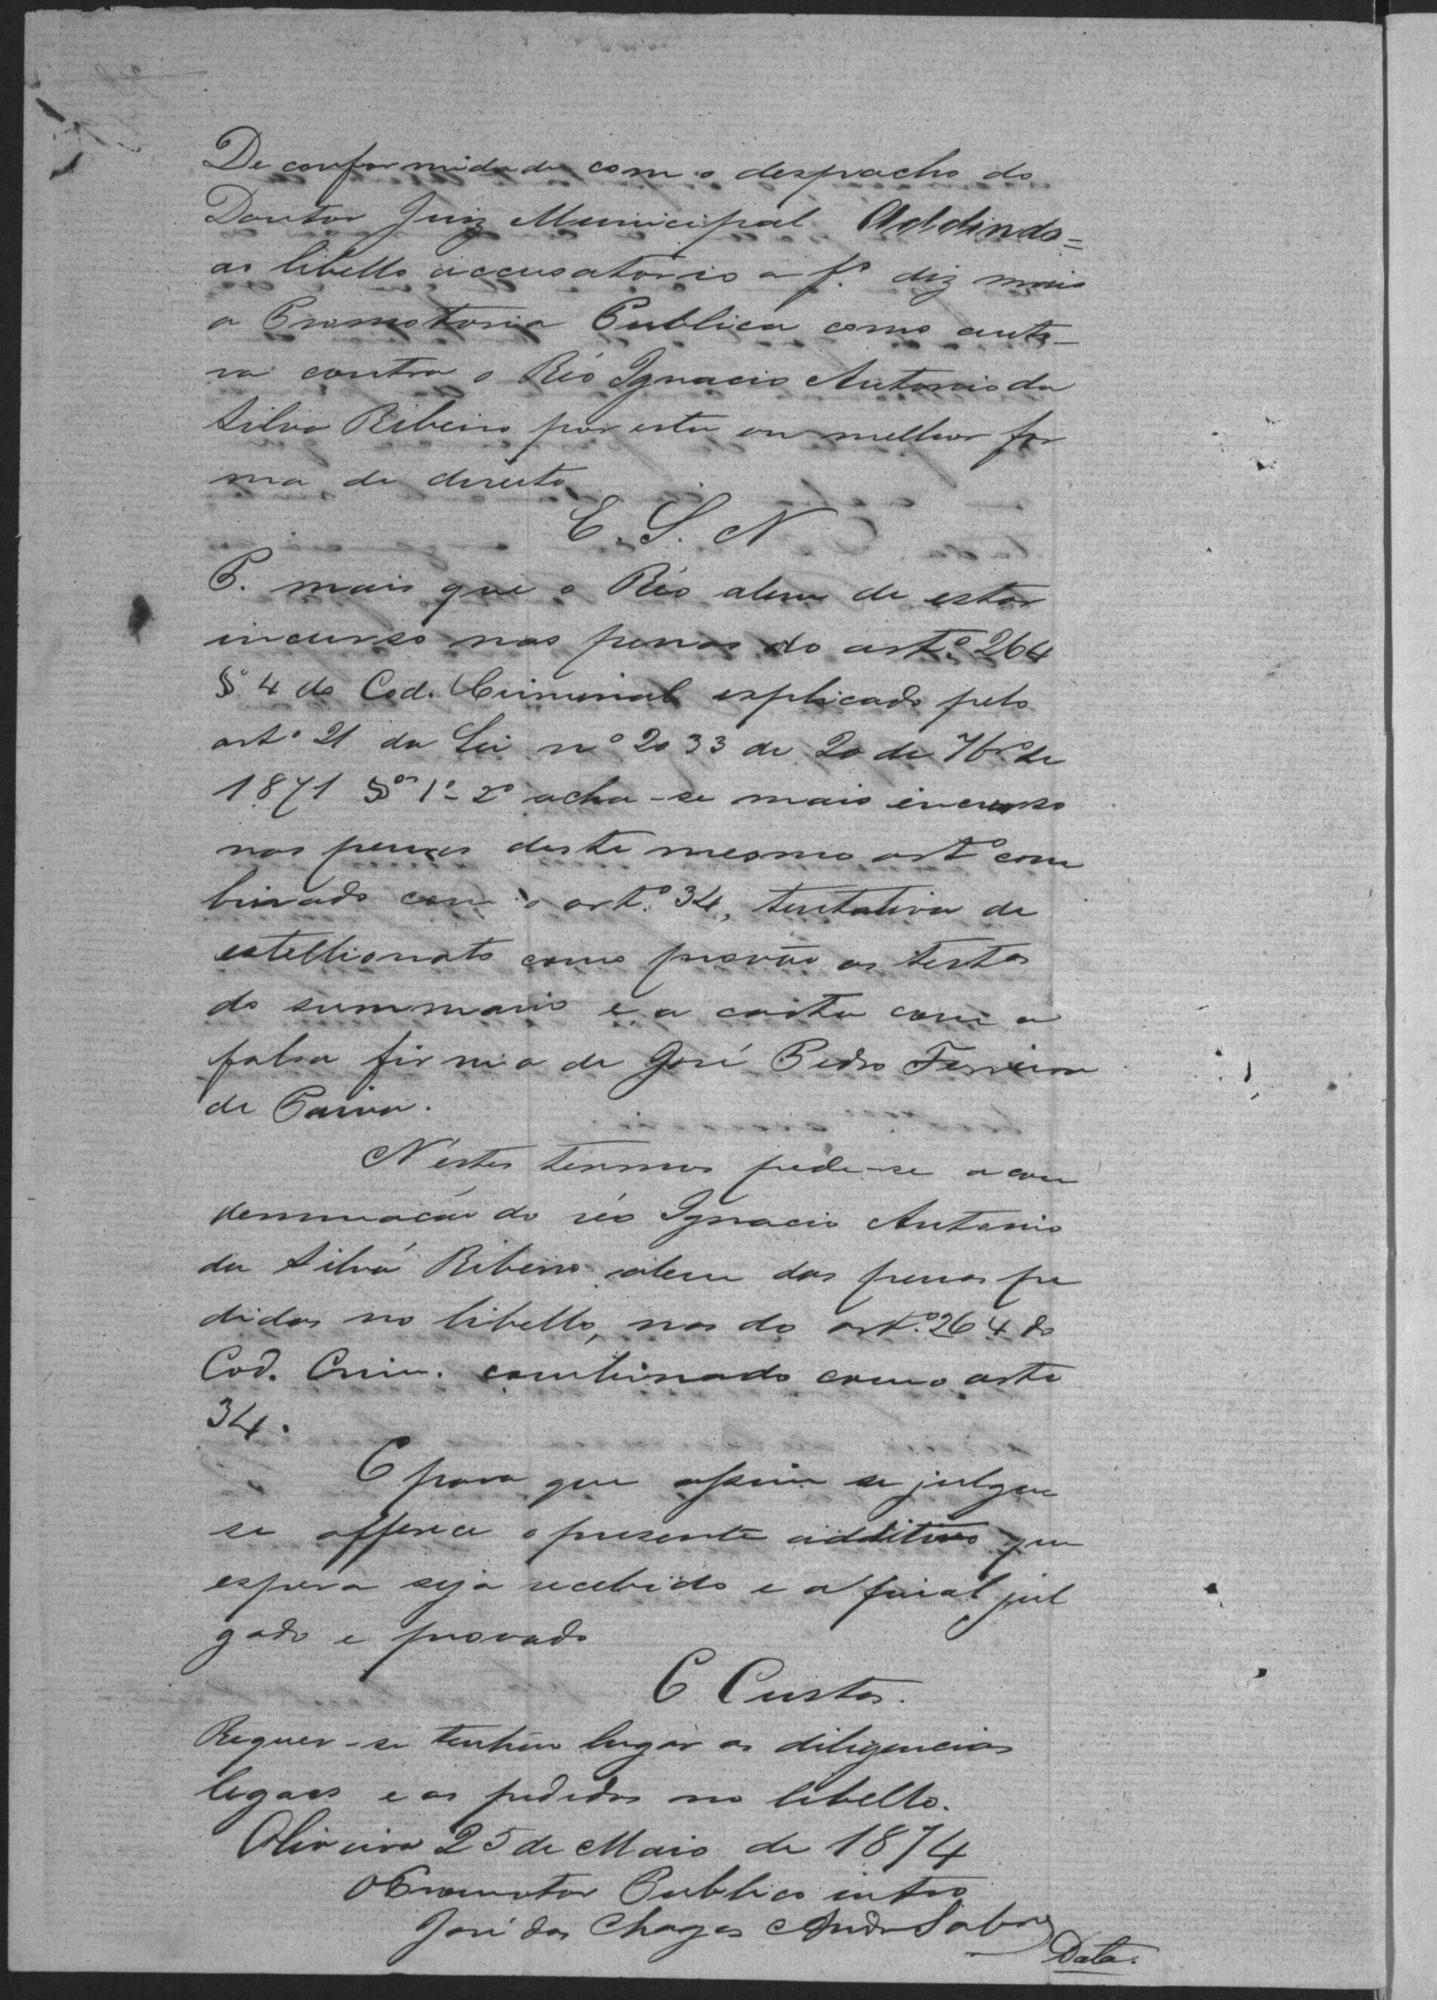 De conformidade com o despacho do
Doutor Juiz Municipal Addindo=
ao libello accusatorio a f.ª diz mais
a Promotoria Publica como auto-
ra contra o Réo Ignacio Antonio da
Silva Ribeiro por esta ou melhor for
ma de direito
E. S. N
P. mais que o Réo alem de estar
incurso nas penas do art.º 264
§º 4 do Cod. Criminal explicado pelo
art.º 21 da Lei nº 2033 de 20 de 7br.º de
1871 §ºs 1º - 2º acha-se mais incurso
nas penas deste mesmo artº com
binado com o art.º 34, tentativa de
estellionato como provão as testas
do summario e a carta com a
falsa firma de José Pedro Ferreira
de Paiva.
N'estes termos pede-se a con
demnação do réo Ignacio Antonio
da Silva Ribeiro alem das penas pe
didas no libello, nas do art.º 264 do
Cod. Crim. combinado com o arto
34.
E para que assim se julgue
se offerece o presente additivo que
espera seja recebido e a final jul
gado e provado
E Custas.
Requer-se tenhão lugar as diligencias
legaes e as pedidas no libello.
Oliveira 25 de Maio de 1874
O Promotor Publico intro
José das Chagas Andr
Data.